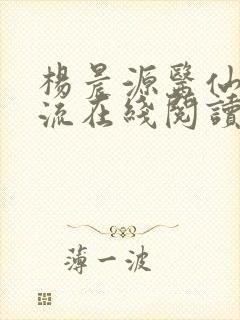 楊晨源醫仙
流在綫閱讀
薄一波